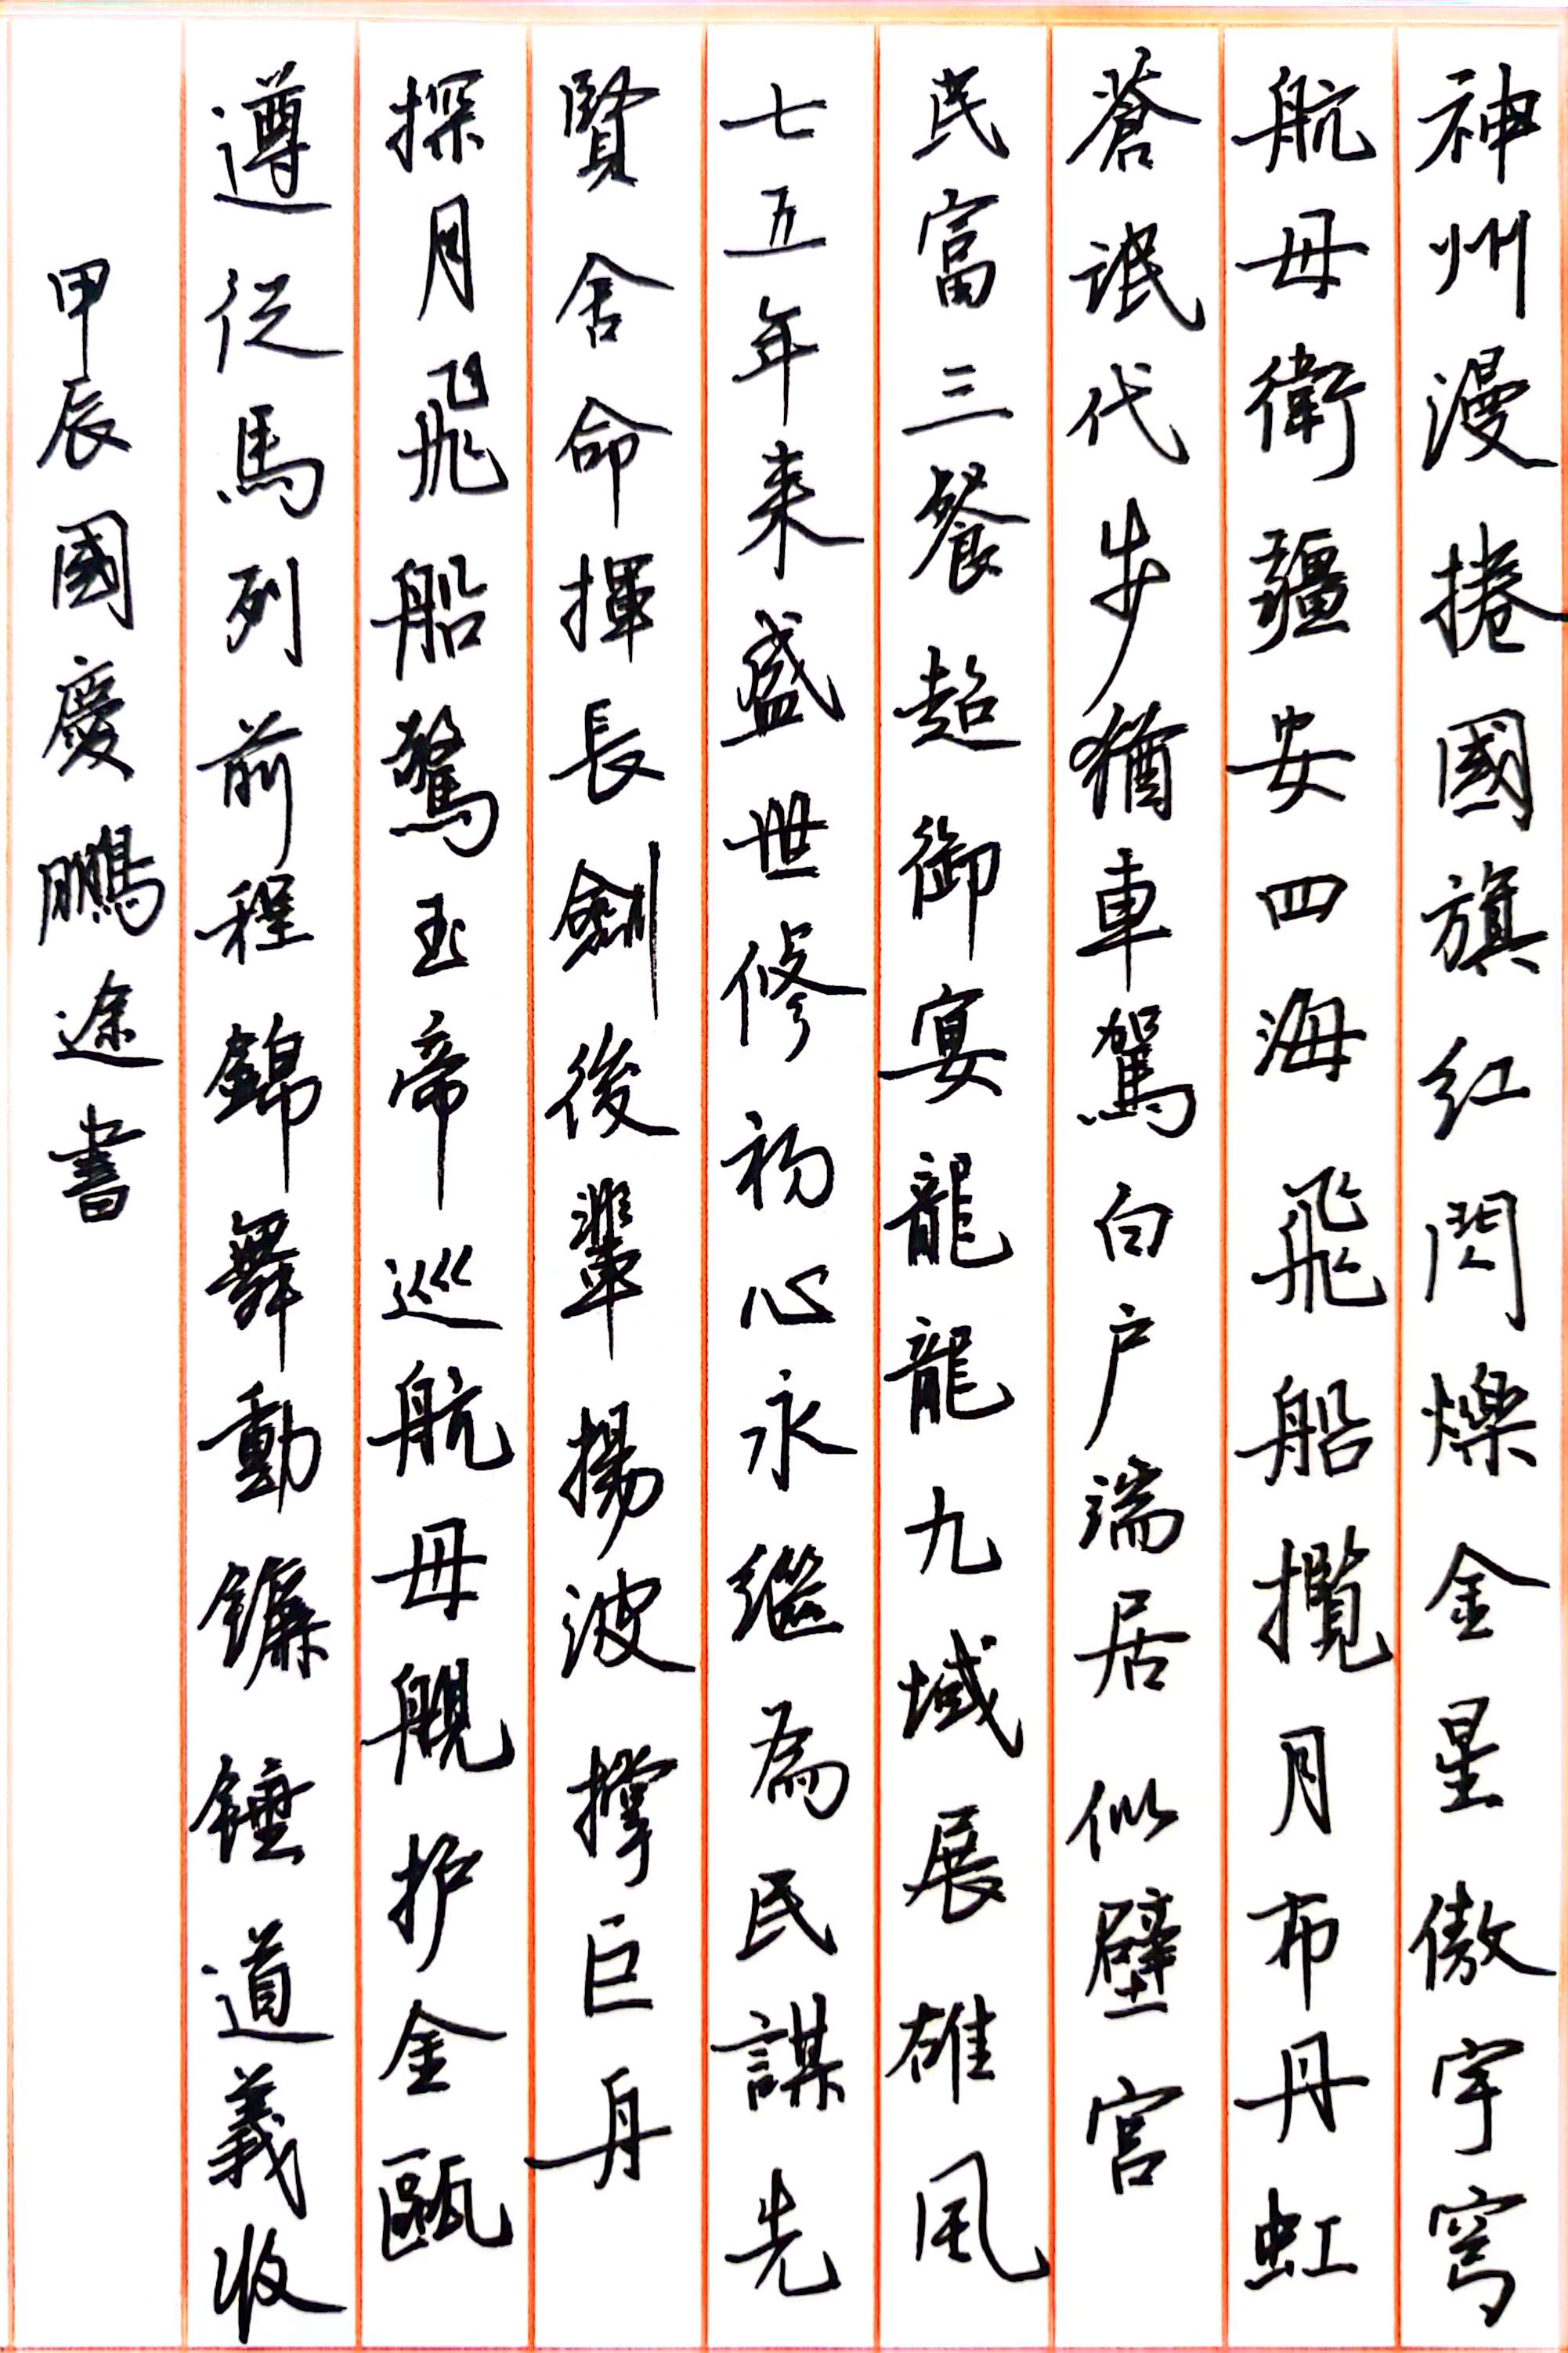 神州漫捲國旗红閃爍金星傲宇穹
航母衛疆安四海飛船攬月布丹虹
蒼氓代步猶車駕白户端居似壁宫
民富三餐超御宴龍龍九域展雄风
七五年来盛世修初心永継為民謀先
賢舍命揮長劍後輩揚波撐巨舟
探月飛船驚玉帝巡航母舰护金甌
遵从馬列前程錦舞動鐮锤道義收
甲辰國慶鵬途書